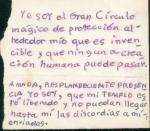 Yo soy el Gran Círculo
mágico de protección al-
rededor mío que es inven-
cible y que ningun a crea-
ción humana puede pasar.
AMADA, RESPLANDECIENTE PRESEN-
CIA YO SOY, que mi TEMPLO ES-
té liberado y no puedan llegar
hasta mí las discordias a mí en-
viadas.